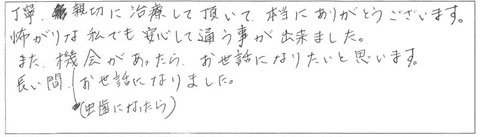 丁寧、親切に治療して頂いて、本当にありがとうございます。
怖がりな私でも安心して通う事が出来ました。
また、機会があったら、お世話になりたいと思います。
長い間、お世話になりました。
(虫歯になったら)